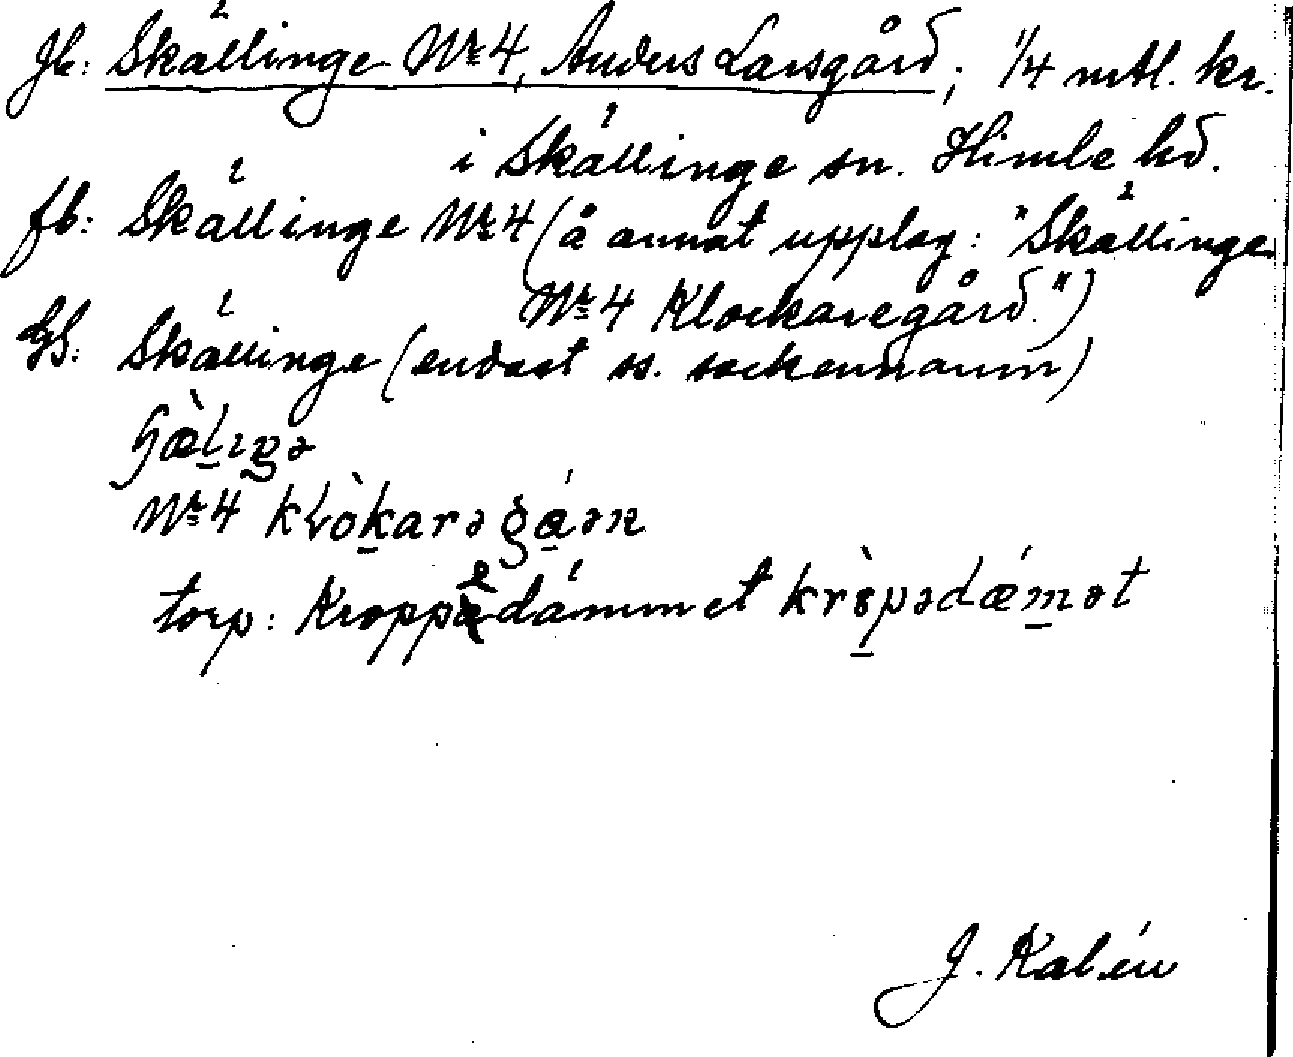 Jb: Skällinge Nr 4, Anders Larsgård; 1/4 mtl. kr.
i Skällinge sn. Himle hd.
fb: Skällinge Nr 4 (å annat upplag: "Skällinge
Nr 4 Klockaregård.")
GS: Skällinge (endast ss. sockennamn)
Nr 4
torp: Kroppedámmet
J. Kalén